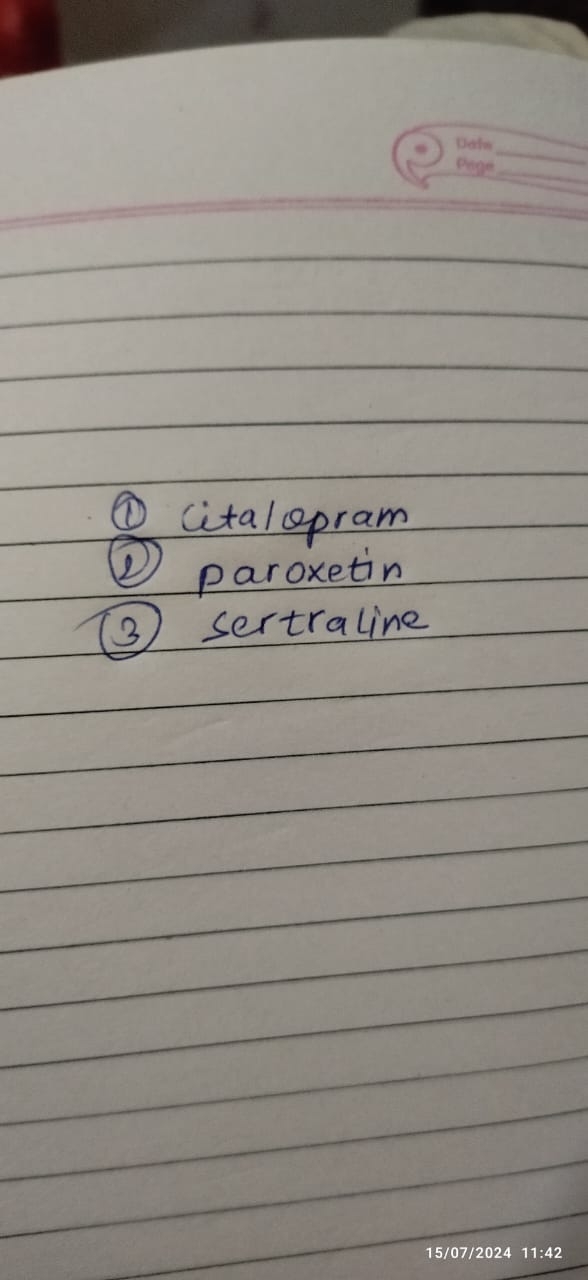 Date
Page
① Citalopram
② paroxetin
③ sertraline
15/07/2024 11:42